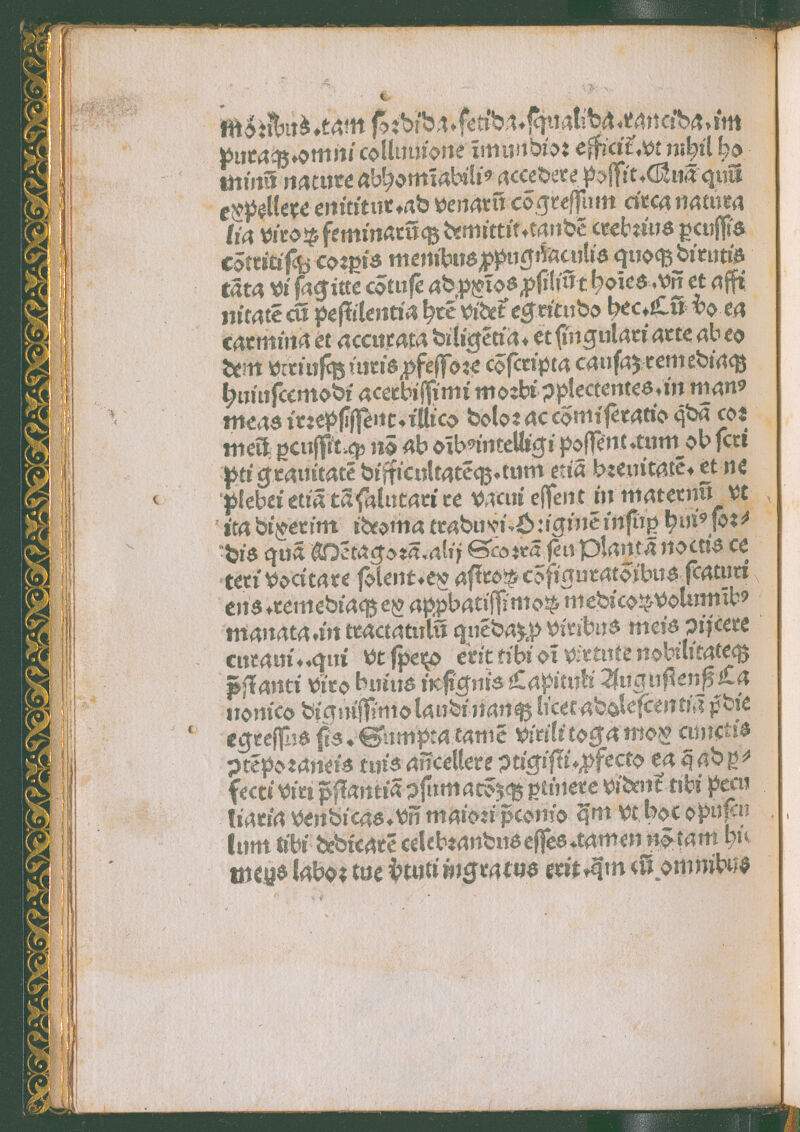 moribus.tam sordida.fetida.squalida.rancida.im
puraqꝫ.omni colluuione īmundior efficit̄.vt nihil ho
minū nature abhomīabiliꝰ accedere possit.Quā quū
expellere enititur.ad venarū cōgressum circa natura
lia viroꝝ feminarūqꝫ demittit.tandē crebrius ꝑcussis
cōtritisqꝫ corꝑis menibus ꝓpugnaculis quoqꝫ dirutis
tāta vi sagitte cōtuse ad ꝓxīos ꝓsiliūt hoīes.vn̄ et affi
nitatē cū pestilentia hr̄e videt̄ egritudo hec.Cū v̄o ea
carmina et accurata diligētia.et singulari arte ab eo
dem vtriusqꝫ iuris ꝓfessore cōscripta causaꝫ remediaqꝫ
huiuscemodi acerbissimi morbi ↄplectentes.in manꝰ
meas irrepsissent.illico dolor ac cōmiseratio q̄dā cor
meū ꝑcussit.ꝙ nō ab oībꝰ intelligi possent.tum ob scri
pti grauitatē difficultatēqꝫ.tum etiā breuitatē.et ne
plebei etiā tā salutari re vacui essent in maternū vt
ita dixerim ideoma traduxi.Originē insuꝑ huiꝰ sor⸗
dis quā Mētagorā.alij Scorrā seu Plantā noctis ce
teri vocitare solent.ex astroꝝ cōfiguratōibus scaturi
ens.remediaqꝫ ex apꝓbatissimoꝝ medicoꝝ volumībꝰ
manata.in tractatulū quēdaꝫ ꝓ viribus meis ↄijcere
curaui..qui vt spero erit tibi oī virtute nobilitateqꝫ
p̄stanti viro huius insignis Capituli Augusteñ Ca
nonico dignissimo laudi nanqꝫ licet adolescentiā p̄die
egressus sis.Sumpta tamē virili toga mox cunctis
ↄtēporaneis tuis an̄cellere ↄtigisti.ꝓfecto ea q̄ ad ꝑ⸗
fecti viri p̄stantiā ↄsumatōꝫqꝫ ꝑtinere vident̄ tibi pecu
liaria vendicas.vn̄ maiori p̄conio q̄m vt hoc opuscu
lum tibi dedicarē celebrandus esses.tamen nō tam hic
meus labor tue v̄tuti ingratus erit.q̄m cū omnibus